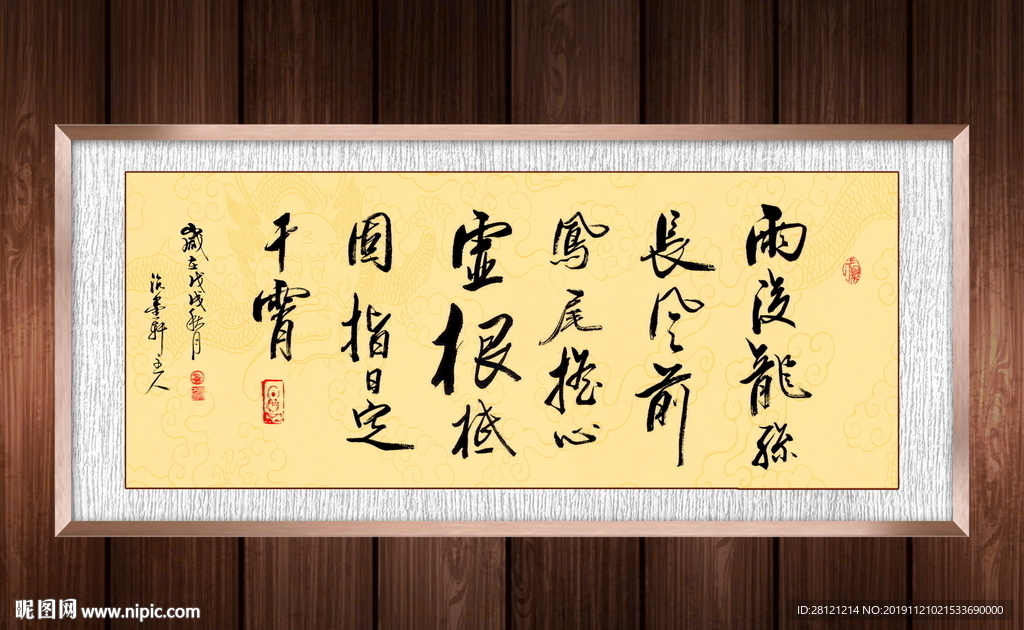 雨後龍孫
長風前
鳳尾搖心
虛根柢
固指日定
干霄
歲在戊戌秋月
墨軒主人
昵图网 www.nipic.com
ID:28121214 NO:20191121021533690000